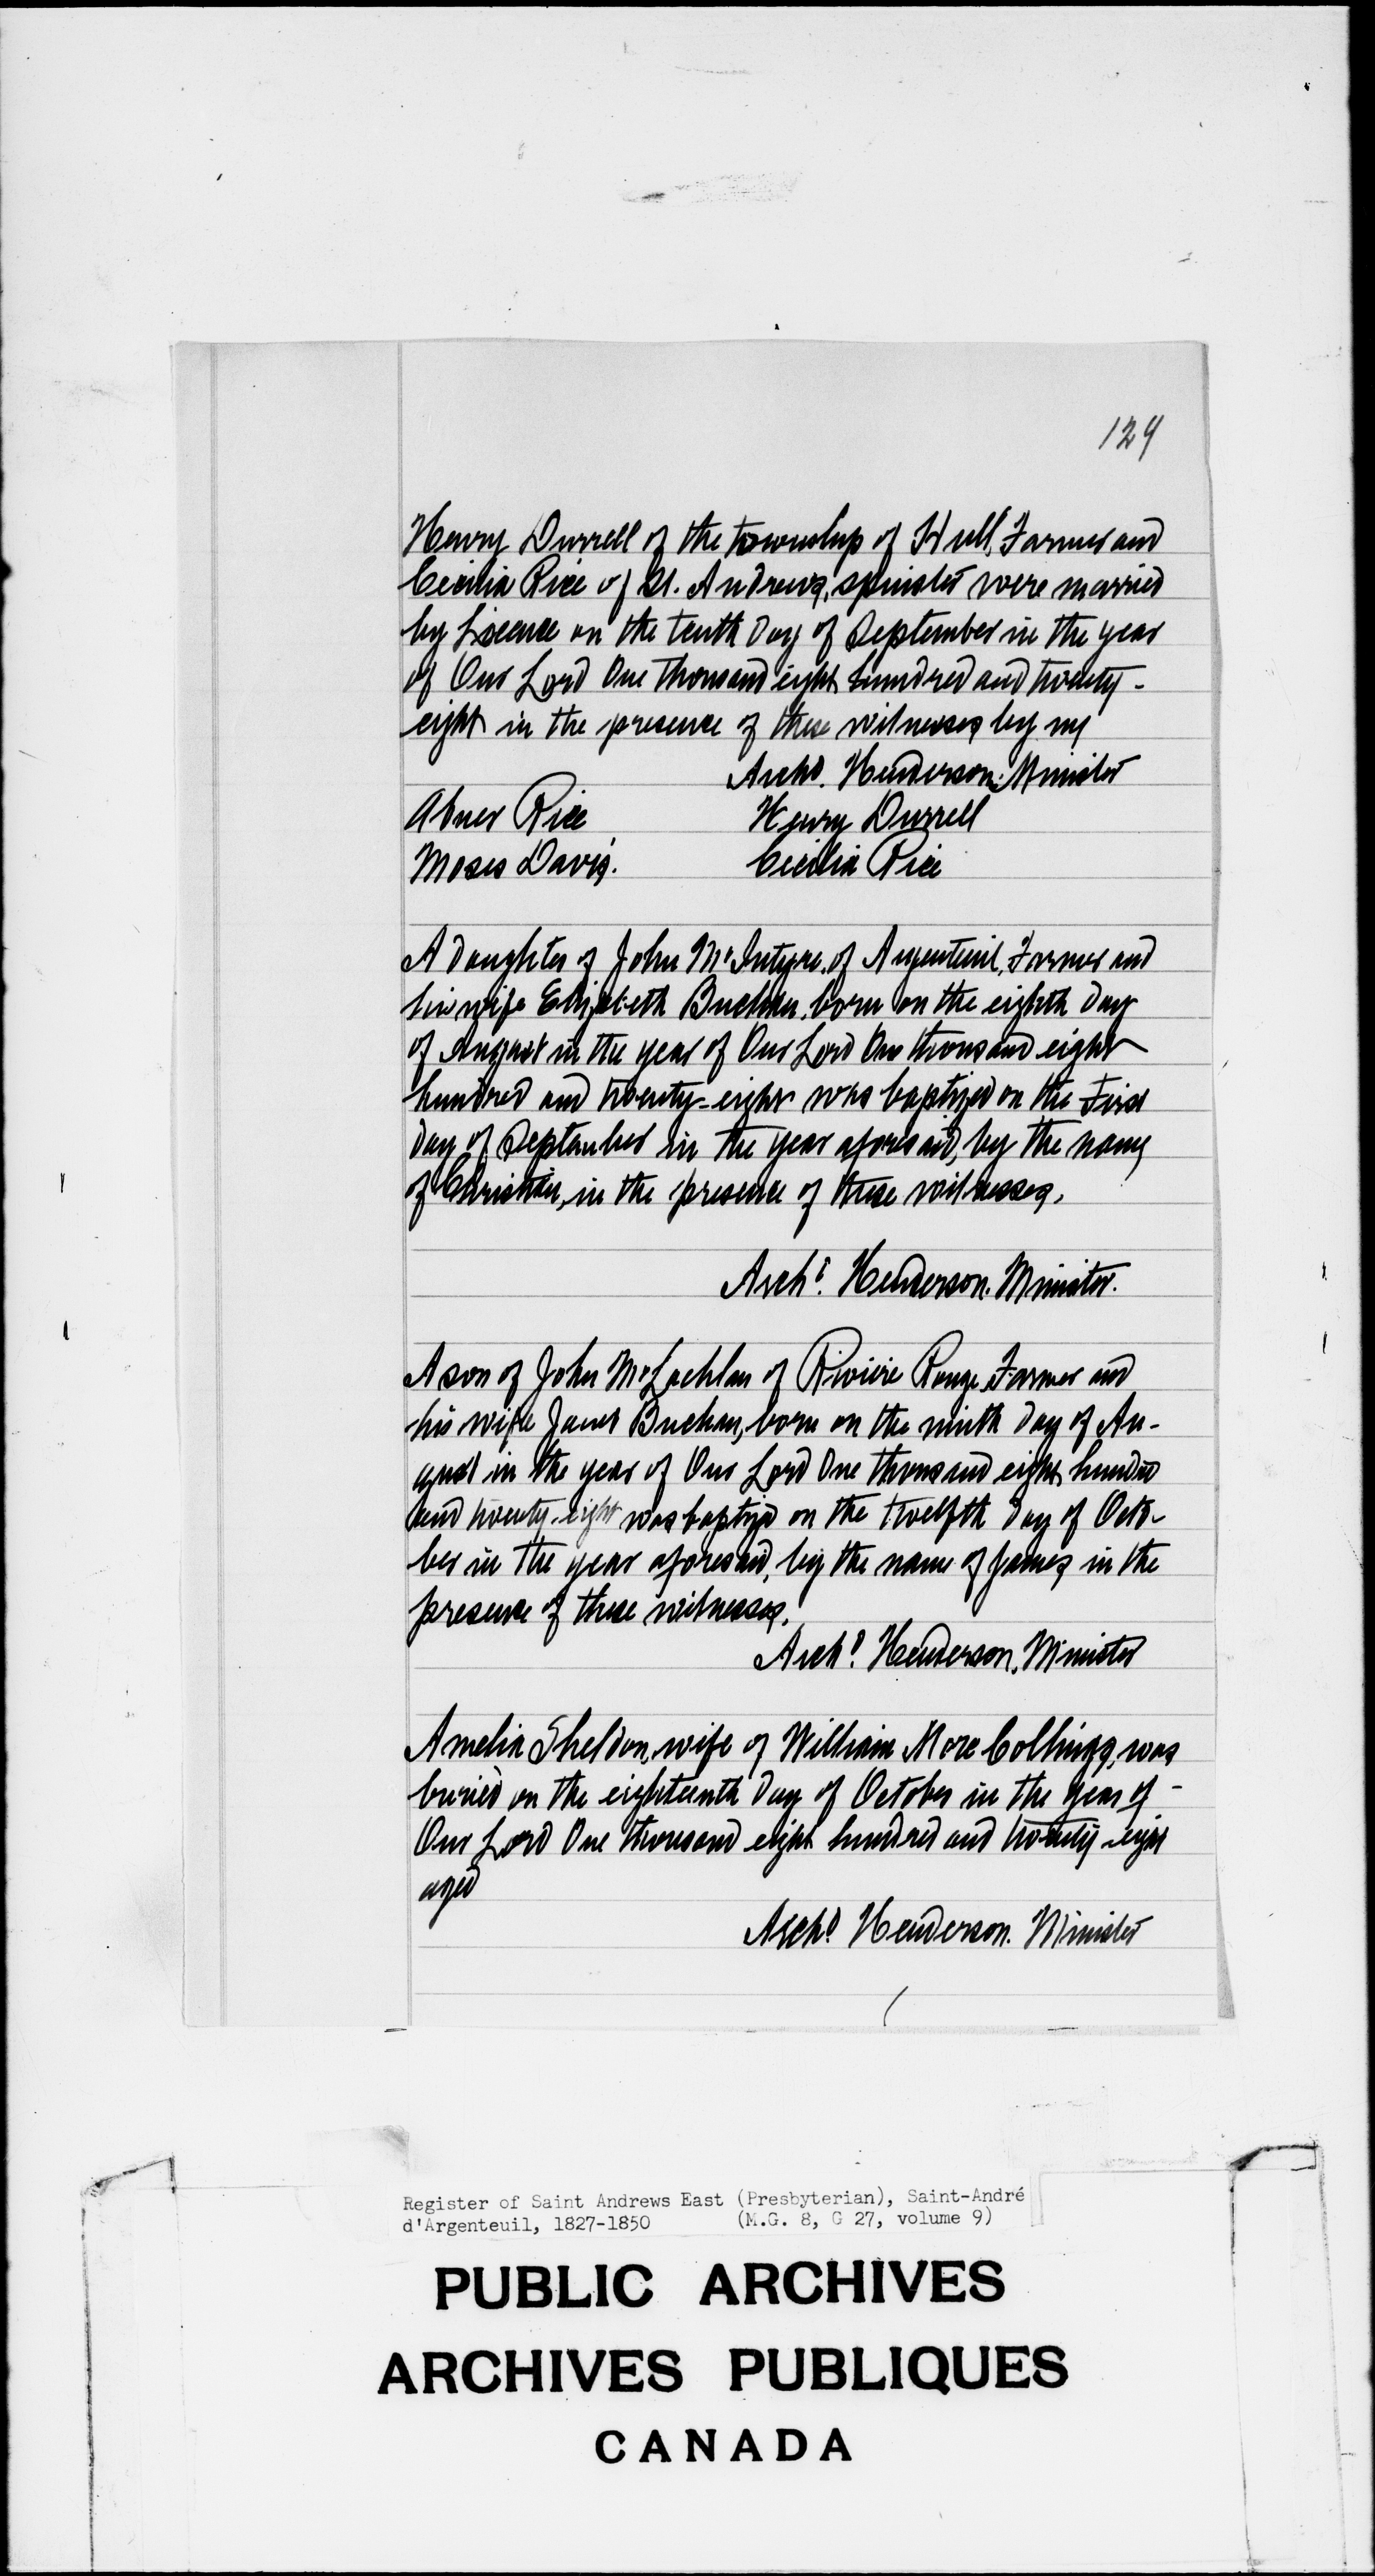 129
Henry Durrell of the township of Hull, Farmer and
Cecilia Rice of St. Andrews, spinster were married
by Licence on the tenth day of September in the year
of Our Lord One thousand eight hundred and twenty-
eight in the presence of these witnesses by me
Archd. Henderson. Minister
Abner Rice Henry Durrell
Moses Davis. Cecilia Rice
A daughter of John McIntyre, of Argenteuil, Farmer and
his wife Elizabeth Buchan, born on the eighth day
of August in the year of Our Lord One thousand eight
hundred and twenty-eight was baptized on the First
day of September in the year aforesaid, by the name
of Christian, in the presence of these witnesses,
Archd. Henderson. Minister.
A son of John McLachlan of Riviere Rouge, Farmer and
his wife Janet Buchan, born on the ninth day of Au-
gust in the year of Our Lord One thousand eight hundred
and twenty-eight was baptized on the twelfth day of Octo-
ber in the year aforesaid, by the name of James, in the
presence of these witnesses.
Archd. Henderson, Minister
Amelia Sheldon, wife of William More Collings, was
buried on the eighteenth day of October in the year of -
Our Lord One thousand eight hundred and twenty-eight
aged
Archd. Henderson. Minister
Register of Saint Andrews East (Presbyterian), Saint-André
d'Argenteuil, 1827-1850 (M.G. 8, G 27, volume 9)
PUBLIC ARCHIVES
ARCHIVES PUBLIQUES
CANADA